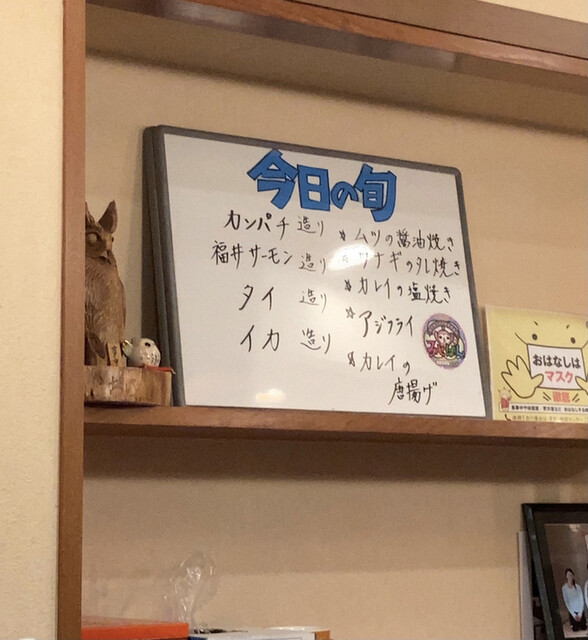 今日の旬
カンパチ 造り
福井サーモン 造り
タイ 造り
イカ 造り
*ムツの醤油焼き
ウナギのタレ焼き
*カレイの塩焼き
*アジフライ
*カレイの
唐揚げ
おはなしは
マスク
徹底